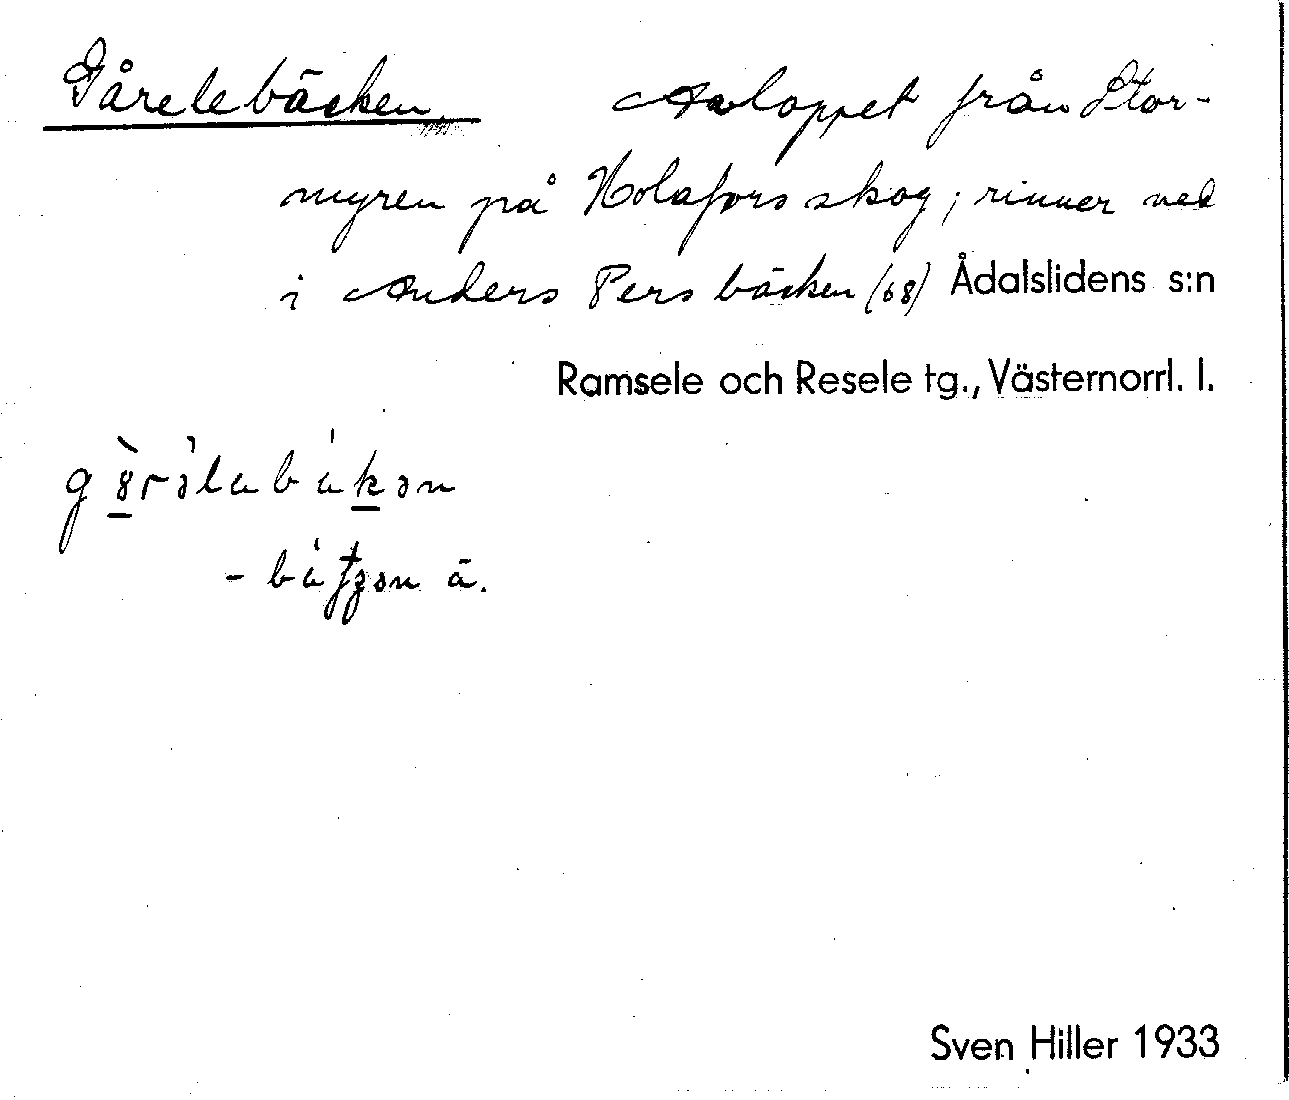 Gårelebäcken Avloppet från Stor-
myren på Holafors skog; rinner ned
i Anders Pers bäcken (68) Ådalslidens s:n
Ramsele och Resele tg., Västernorrl. l.
ä.
Sven Hiller 1933